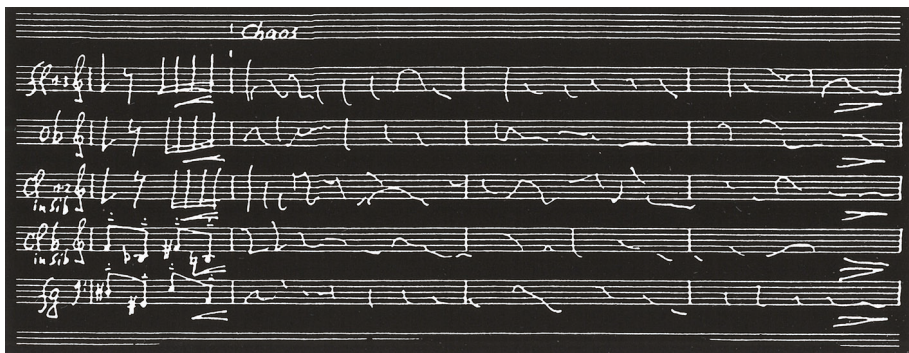 Chaos
fl 1-3
ob
Cl 1-2
in sib
Cl b
in sib
fg